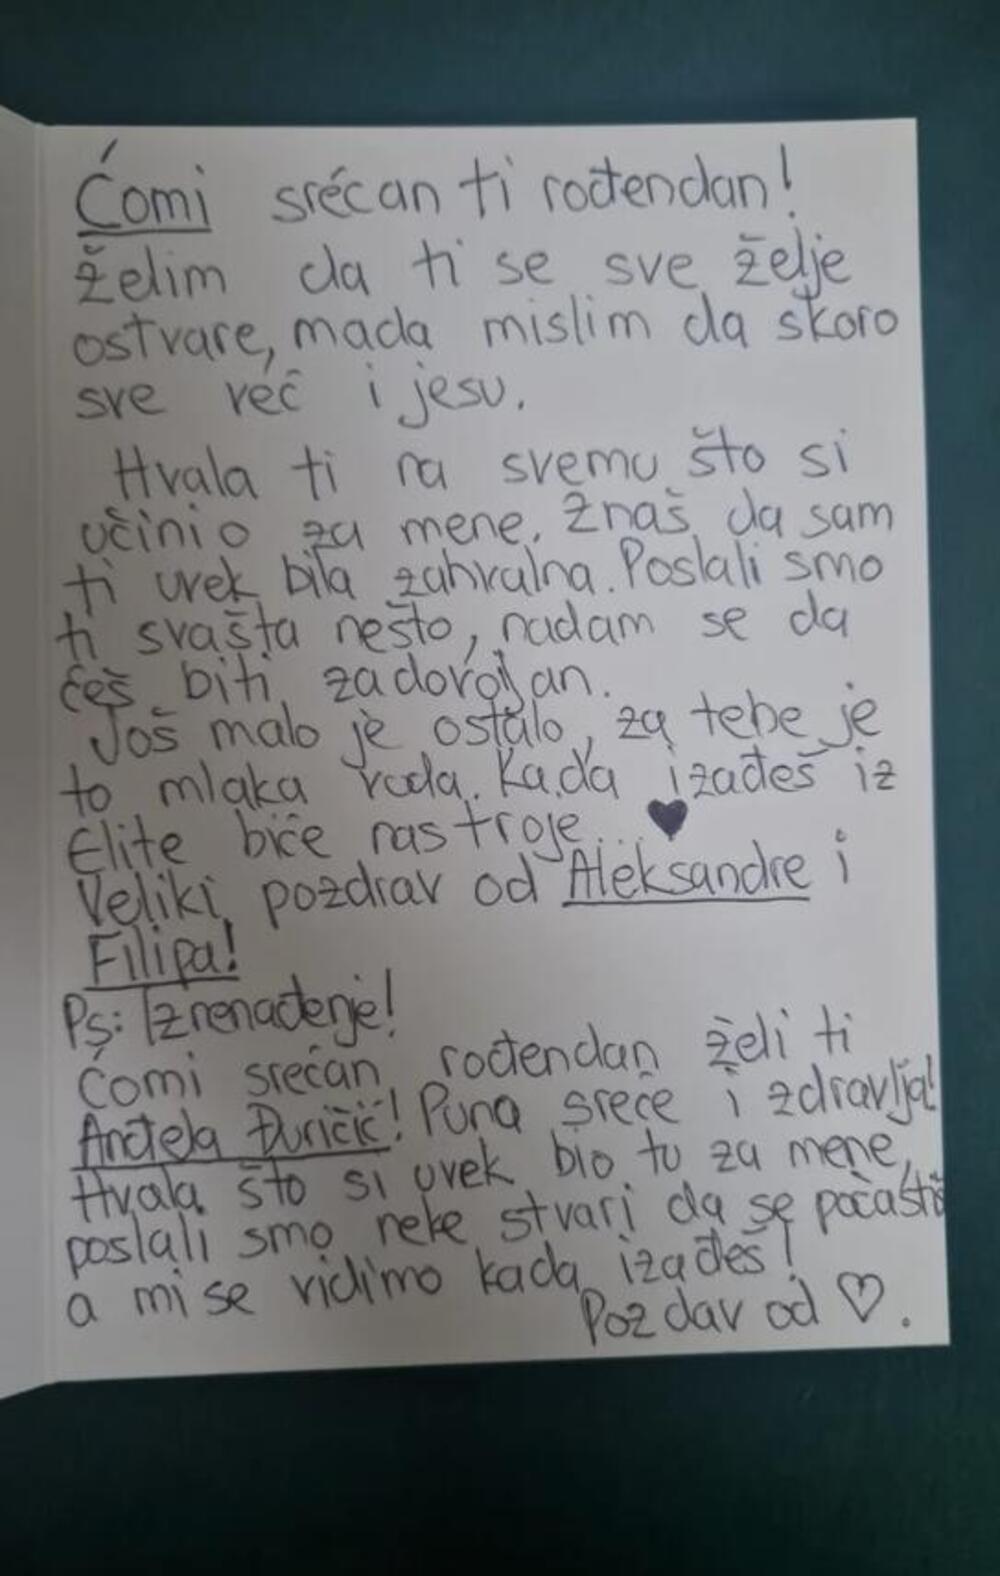 Ćomi srećan ti rođendan!
Želim da ti se sve želje
ostvare, mada mislim da skoro
sve već i jesu.
Hvala ti na svemu što si
učinio za mene. Znaš da sam
ti uvek bila zahvalna. Poslali smo
ti svašta nešto, nadam se da
ćeš biti zadovoljan.
Još malo je ostalo, za tebe je
to mlaka voda. Kada izađeš iz
Elite biće nas troje... ♥
Veliki pozdrav od Aleksandre i
Filipa!
Ps: Iznenađenje!
Ćomi srećan rođendan želi ti
Anđela Đuričić! Puna sreće i zdravlja!
Hvala što si uvek bio tu za mene,
poslali smo neke stvari da se počastiš
a mi se vidimo kada izađeš!
Pozdav od ♡.